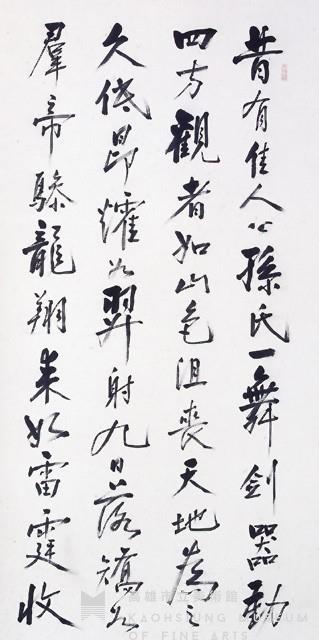 昔有佳人公孫氏一舞劍器動
四方觀者如山色沮喪天地為之
久低昂㸌如羿射九日落矯如
羣帝驂龍翔來如雷霆收
高雄市立美術館
KAOHSIUNG MUSEUM
OF FINE ARTS